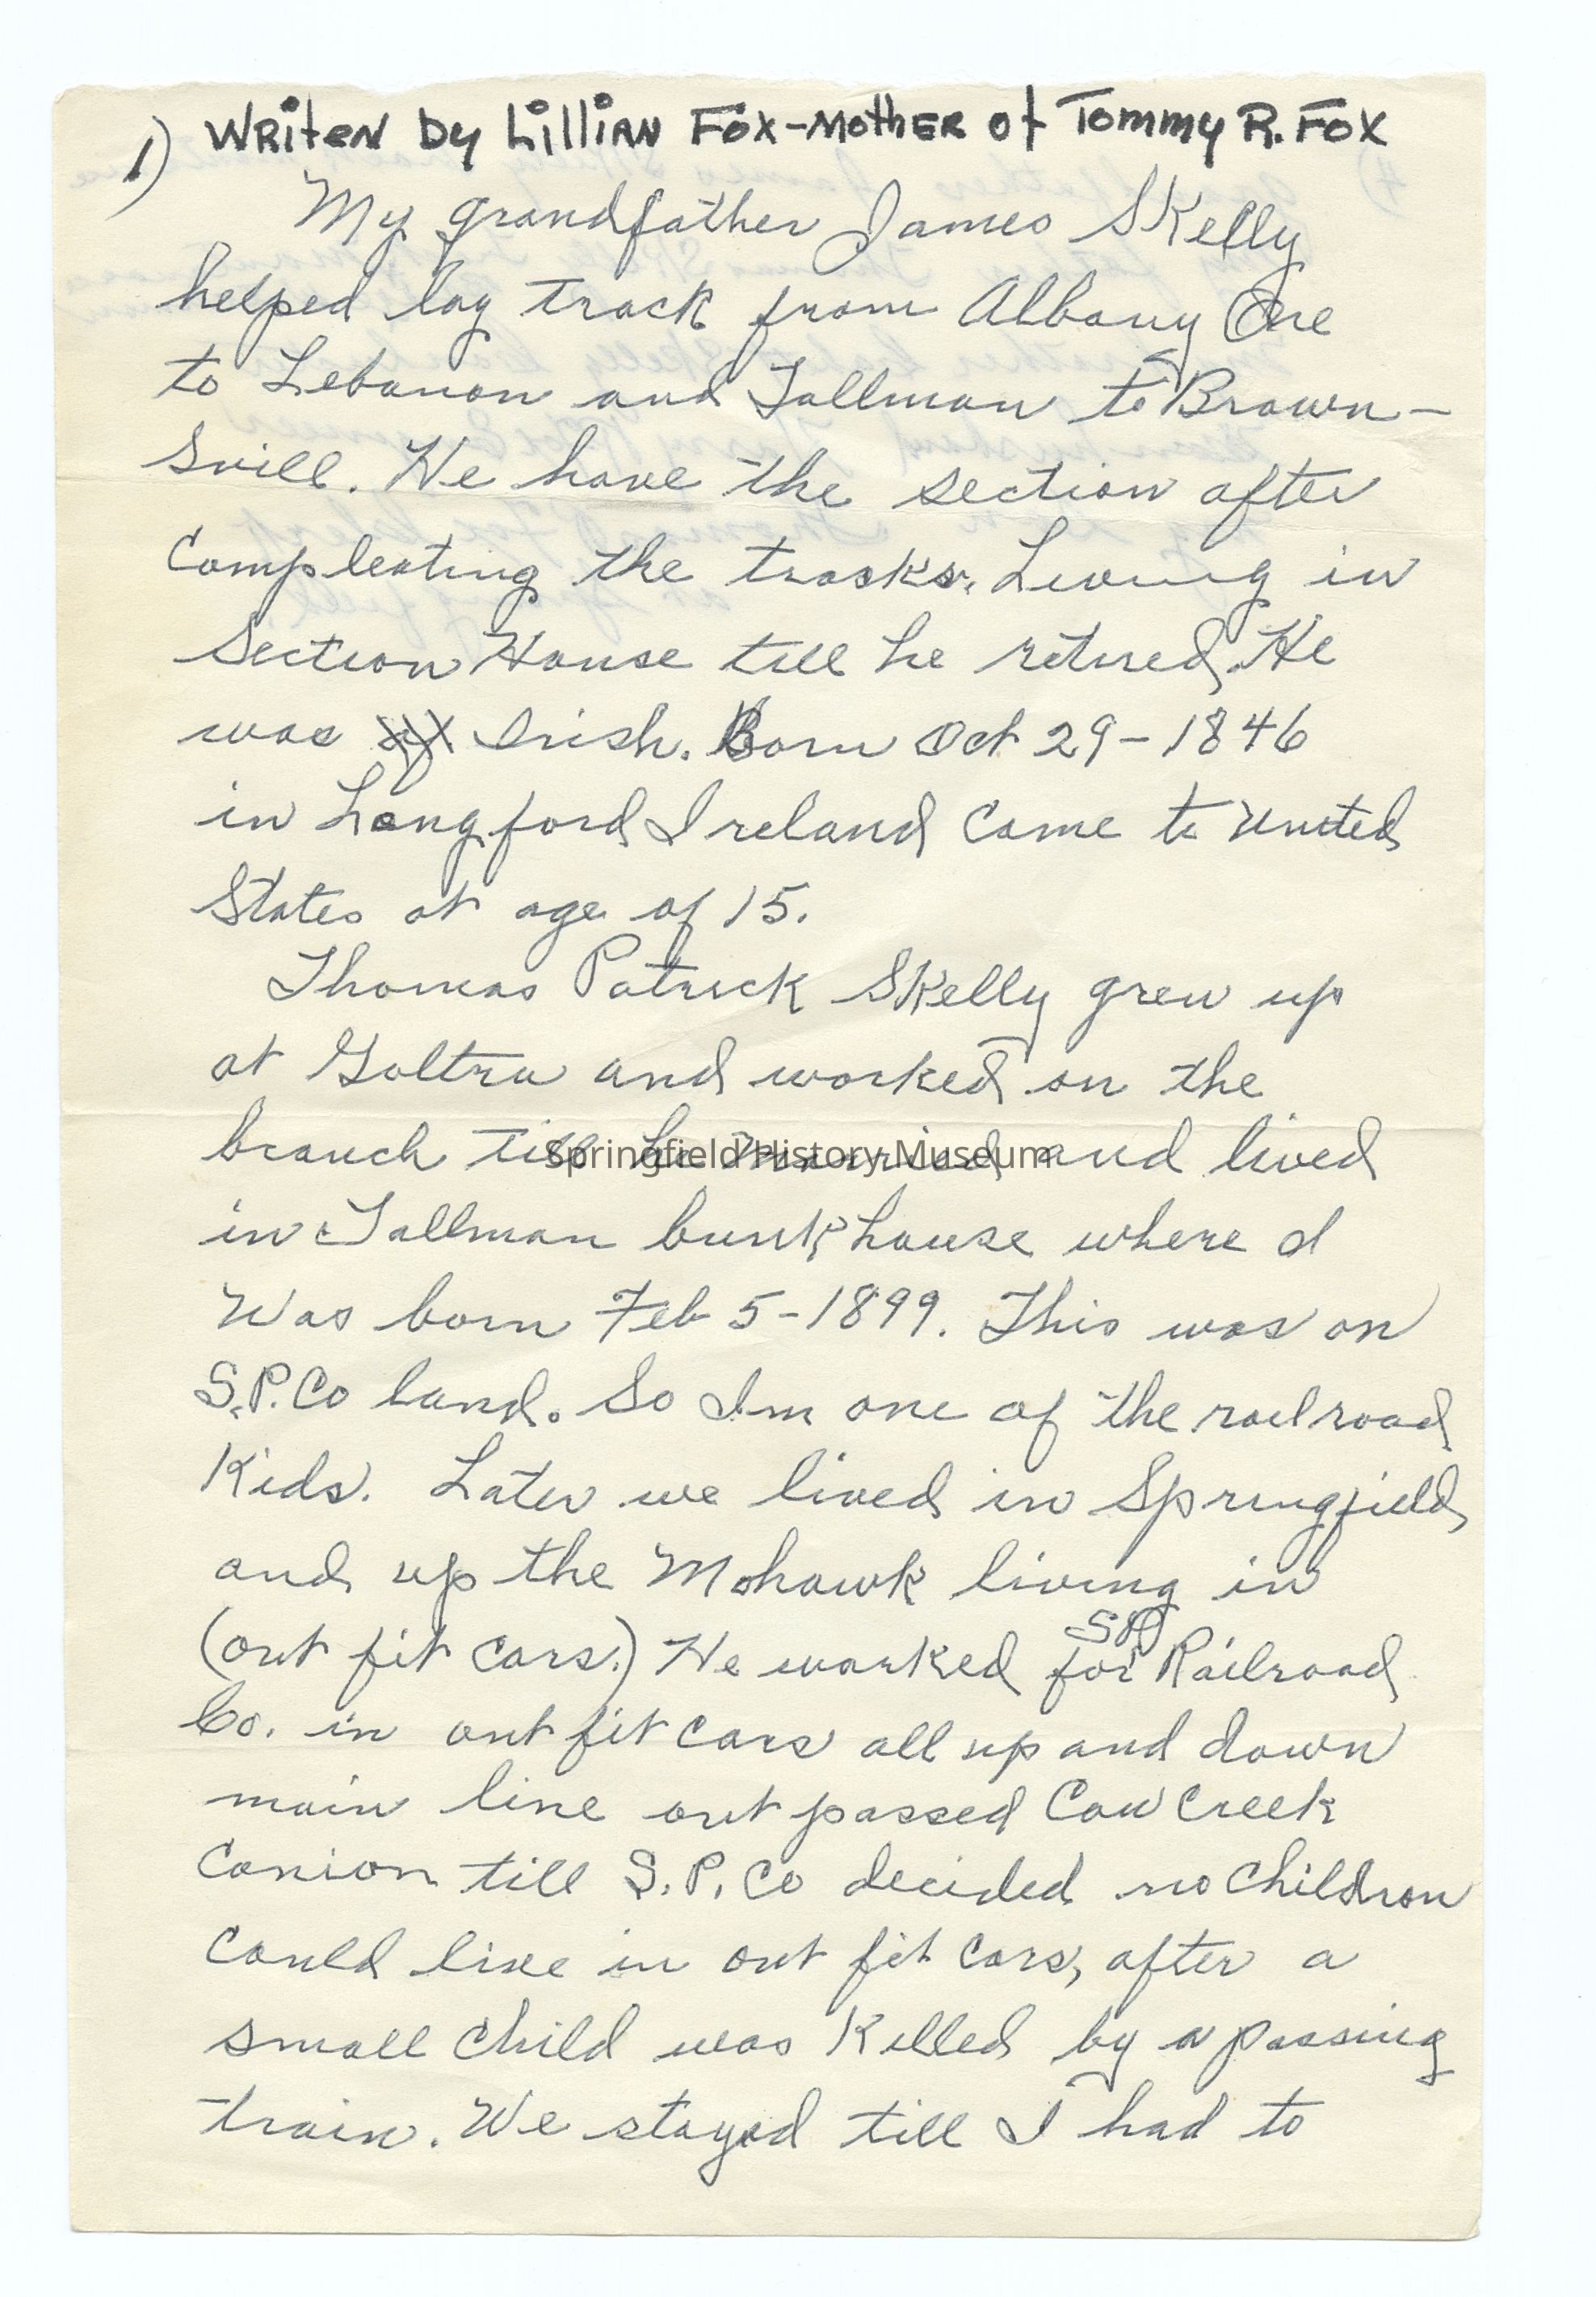 1) Writen by Lillian Fox-Mother of Tommy R. Fox
My grandfather James Skelly
helped lay track from Albany Ore
to Lebanon and Tallman to Brown-
svill. He have the section after
compleating the tracks. Living in
Section House till he retired. He
was Irish. Born Oct 29-1846
in Longford, Ireland came to United
States at age of 15.
Thomas Patrick Skelly grew up
at Goltra and worked on the
branch till he married and lived
Springfield History Museum
in Tallman bunk house where I
was born Feb 5-1899. This was on
S.P. Co land. So Im one of the railroad
Kids. Later we lived in Springfield,
and up the Mohawk living in
(out fit cars.) He worked for SP Railroad
Co. in out fit cars all up and down
main line out passed Cow Creek
Canion till S.P. Co decided no children
could live in out fit cars, after a
small child was killed by a passing
train. We stayed till I had to